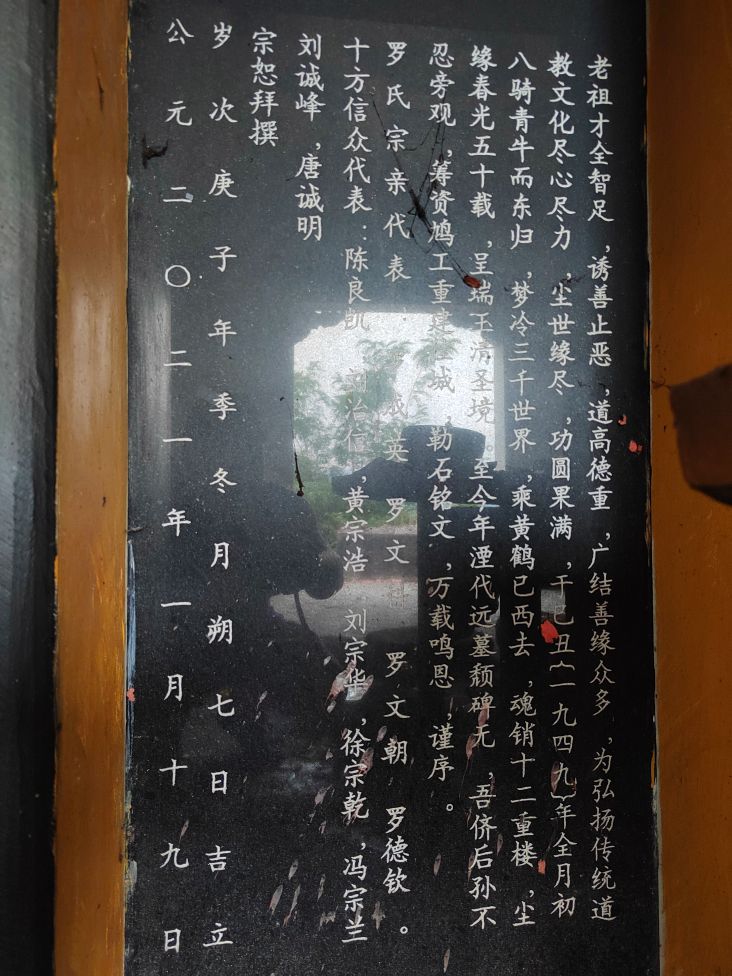 老祖才全智足，诱善止恶，道高德重，广结善缘众多，为弘扬传统道
教文化尽心尽力，尘世缘尽，功圆果满，于巳丑（一九四九）年全月初
八骑青牛而东归，梦冷三千世界，乘黄鹤已西去，魂销十二重楼，尘
缘春光五十载，呈瑞玉清圣境。至今年湮代远墓颓碑无，吾侪后孙不
忍旁观，筹资鸠工重建佳城，勒石铭文，万载鸣恩，谨序。
罗氏宗亲代表：成英 罗文 罗文朝 罗德钦。
十方信众代表：陈良凯 刘治信，黄宗浩 刘宗华，徐宗乾，冯宗兰
刘诚峰，唐诚明
宗恕拜撰
岁次庚子年季冬月朔七日吉立
公元二〇二一年一月十九日